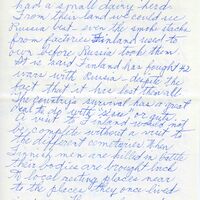 had a small dairy herd.
From their land we could see
Russia but even the smoke stacks
from factories. Finland used to
own before Russia took them
It is said Finland has fought 42
wars with Russia - despite the
fact that it has lost them all
The country's survival has a great
deal to do with "sisu" or guts.
A visit to Finland would not
be complete without a visit to
the different cemeteries. When
Finnish men are killed in battle
their bodies are brought back
to local resting places near
to the places they once lived